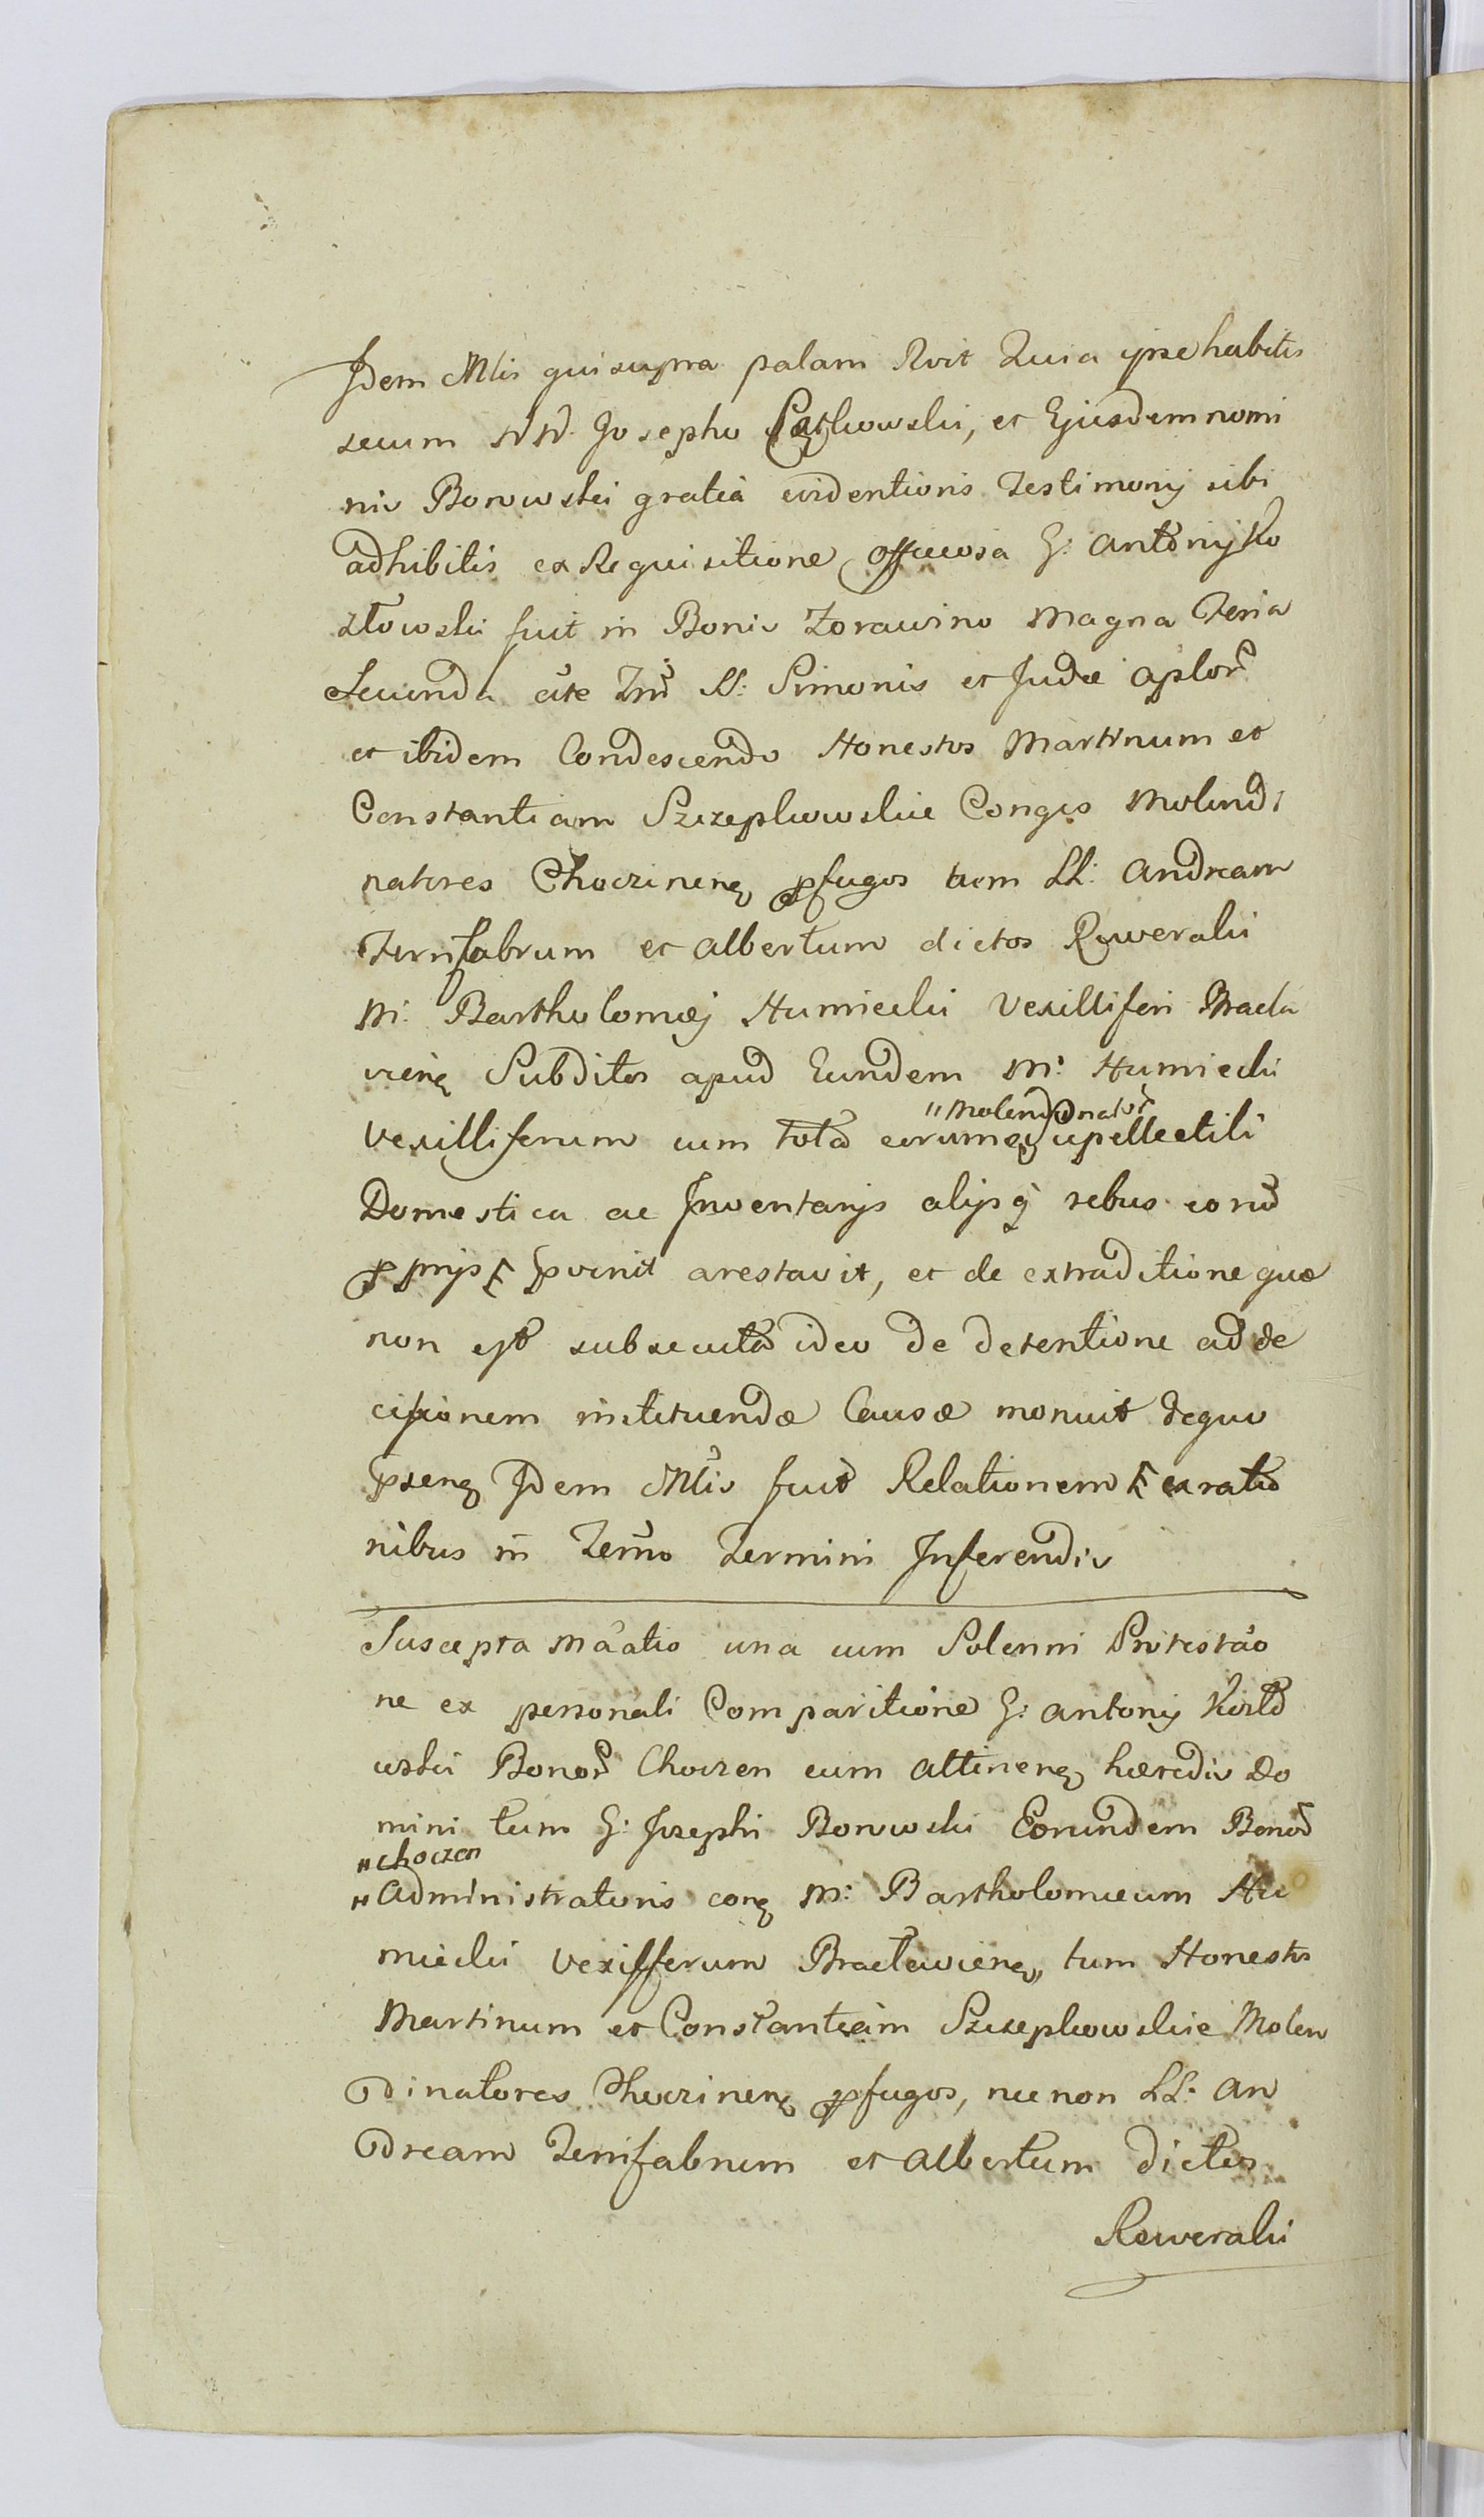 Idem Mlis qui supra palam Rvit Quia ipse habitis
secum NN. Josepho Pątkowski, et Ejusdem nomi
nis Borowski gratia evidentioris Testimonij sibi
adhibitis ex Requisitione officiosa G: Antonij Ko
złowski fuit in Bonis Zorawino Magna Feria
Secunda ante SS: Simonis et Judæ Aplor̃
et ibidem Condescendo Honestos Martinum et
Constantiam Szczepkowskie Conges Molendi
natores Choczinen̨ pfugos tum LL: Andream
Ternifabrum et Albertum dictos Rewerski
M: Bartholomæj Humiecki Vexilliferi Bracla
vien̨ Subditos apud Eundem M: Humiecki
"Molendinator̃
Vexilliferum cum tota eorumq̨ supellectili
Domestica ac Inventarijs alijsq̨ rebus eorũ
pprijs invenit arestavit, et de extraditione quæ
non est subsecuta ideo de detentione ad de
cisionem instituendæ Causæ monuit de quo
pren̨ Idem Mlis fuit Relationem ex ratio
nibus in Termo Termini Inferendis
Suscepta Mãatio una cum Solenni Protestão
ne ex personali Comparitione G: Antonij Kozło
wski Bonor̃ Choczen cum attinen̨ hæredis Do
mini tum G: Josephi Borowski Eorundem Bonor̃
"Choczen
"Administratoris con̨ M: Bartholomæum Hu
miecki Vexifferum Braclavien̨ tum Honestos
Martinum et Constantiam Szczepkowskie Molen
dinatores Choczinen̨ pfugos, nec non LL: An
dream Ternifabrum et Albertum dictos
Rewerski